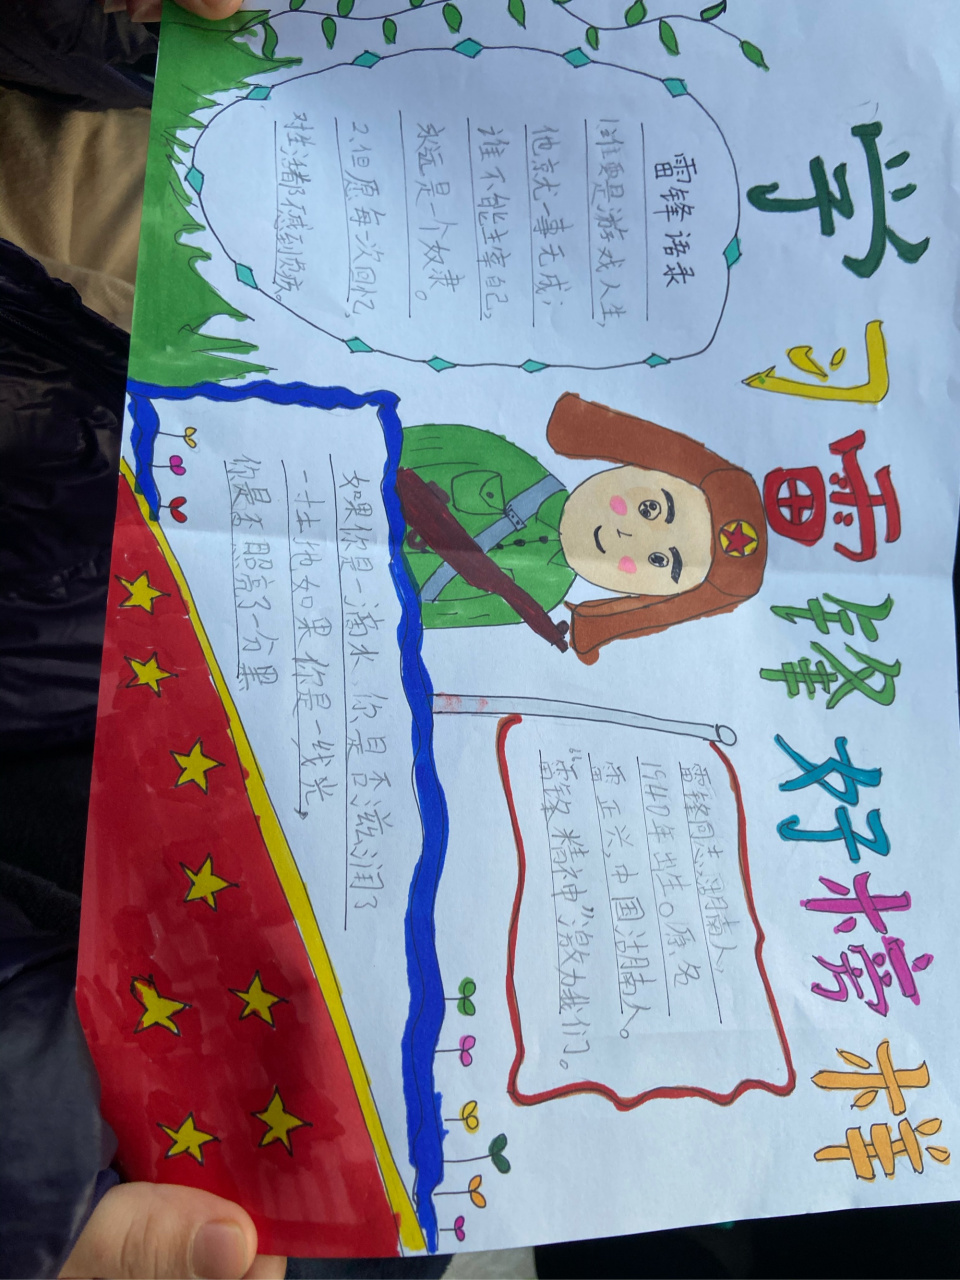 学习雷锋好榜样
雷锋语录
1谁要是游戏人生,
他就一事无成;
谁不能主宰自己,
永远是一个奴隶。
2、但愿每一次回忆,
对生活都不感到负疚。
雷锋同志,湖南人,
1940年出生。原名
雷正兴,中国湖南人。
“雷锋精神”激力我们。
如果你是一滴水、你是否滋润了
一寸土地如果你是一线光,
你是否照亮了一分黑